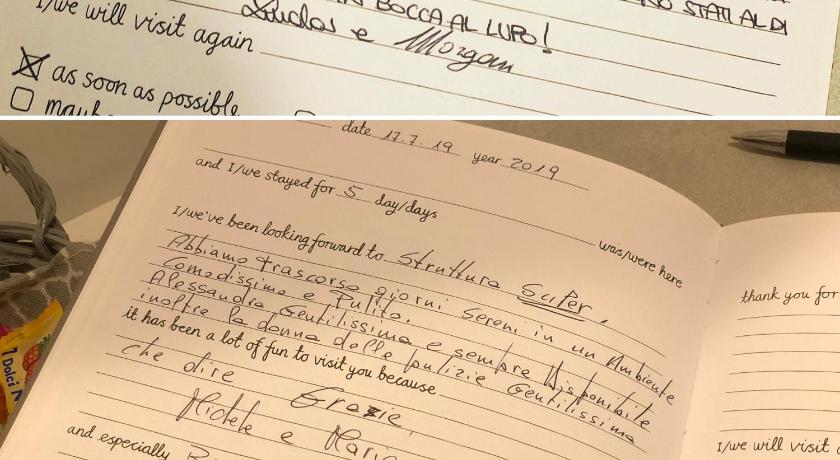 IN BOCCA AL LUPO!
STATI AL DI
I/we will visit again
e Morgan
as soon as possible
maybe
date 17.7.19 year 2019
was/were here
and I/we stayed for 5 day/days
I/we've been looking forward to Struttura Super.
Abbiamo trascorso giorni sereni in un Ambiente
Comodissimo e Pulito.
Alessandra Gentilissima e sempre Disponibile
inoltre la donna delle pulizie Gentilissima
it has been a lot of fun to visit you because
che dire Grazie
Michele e Maria
and especially
thank you for
I/we will visit
Dolci